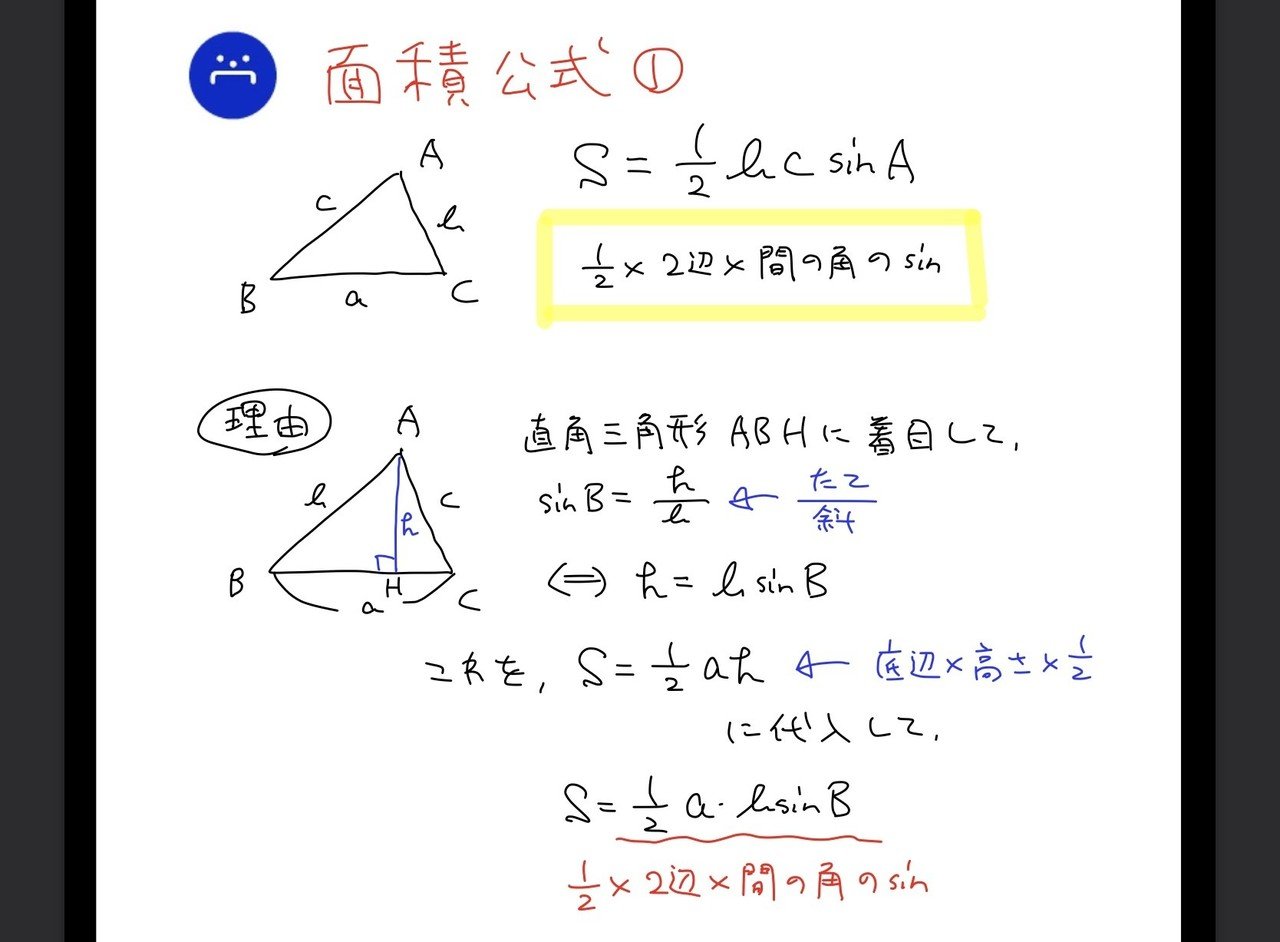 面積公式①
A
c
b
B
a
C
S = 1/2 bc sinA
1/2 × 2辺 × 間の角の sin
理由
A
b
c
h
B
H
C
a
直角三角形 ABH に着目して,
sinB = h/b ← たて/斜
⇔ h = b sinB
これを, S = 1/2 ah ← 底辺×高さ×1/2
に代入して,
S = 1/2 a・b sinB
1/2 × 2辺 × 間の角の sin